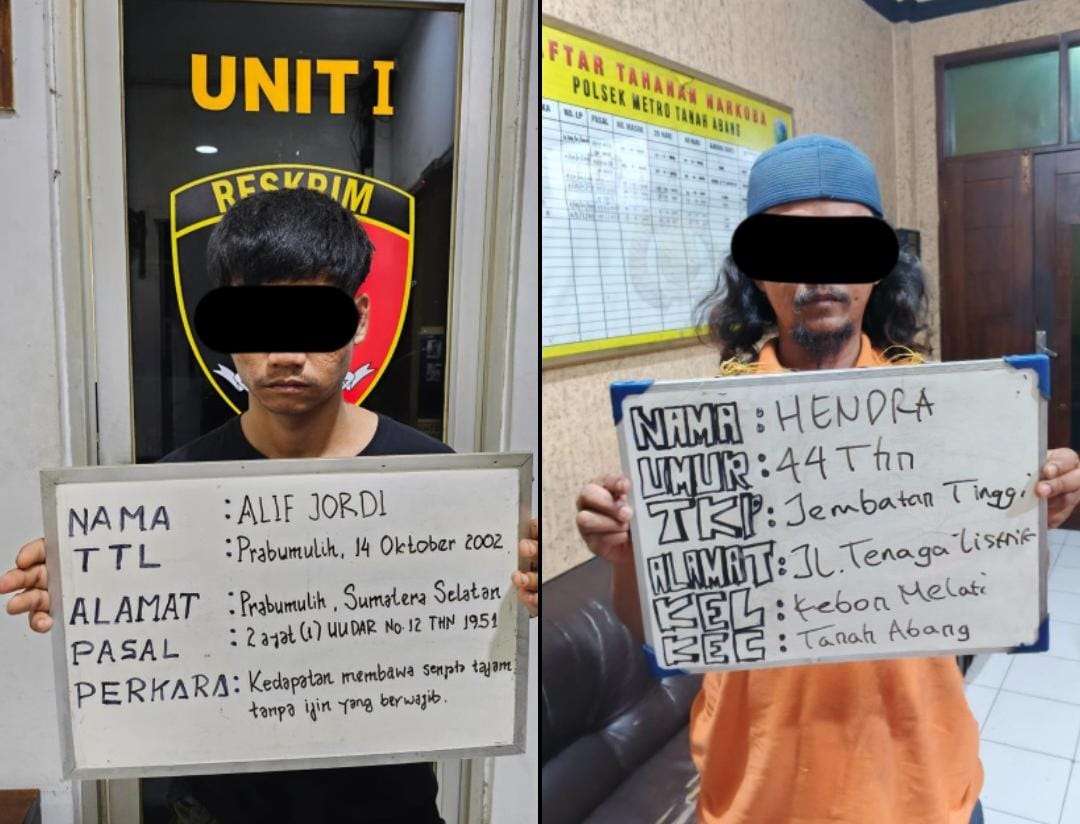 UNIT I
RESKRIM
NAMA : ALIF JORDI
TTL : Prabumulih, 14 Oktober 2002
ALAMAT : Prabumulih, Sumatera Selatan
PASAL : 2 ayat (1) UUDAR No. 12 THN 1951
PERKARA : Kedapatan membawa senjata tajam
tanpa ijin yang berwajib.
FTAR TAHANAN NARKOBA
POLSEK METRO TANAH ABANG
NO. LP PASAL 20 HARI 40 HARI
NAMA : HENDRA
UMUR : 44 Thn
TKP : Jembatan Tinggi
ALAMAT : JL. Tenaga Listrik
KEL : Kebon Melati
KEC : Tanah Abang